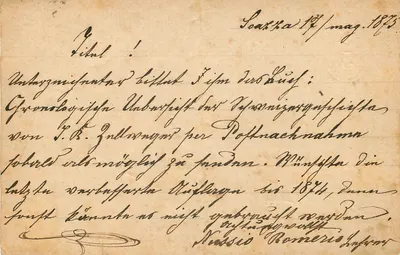 Soazza 17/mag. 1875.
Titel !
Unterzeichneter bittet Ihm das Buch:
Chronologische Uebersicht der Schweizergeschichte
von J. K. Zellweger per Postnachnahme
sobald als möglich zu senden. Wünschte die
letzte verbesserte Auflage bis 1874, denn
sonst könnte es nicht gebraucht werden.
Achtungsvollst
Nussio Romerio Lehrer